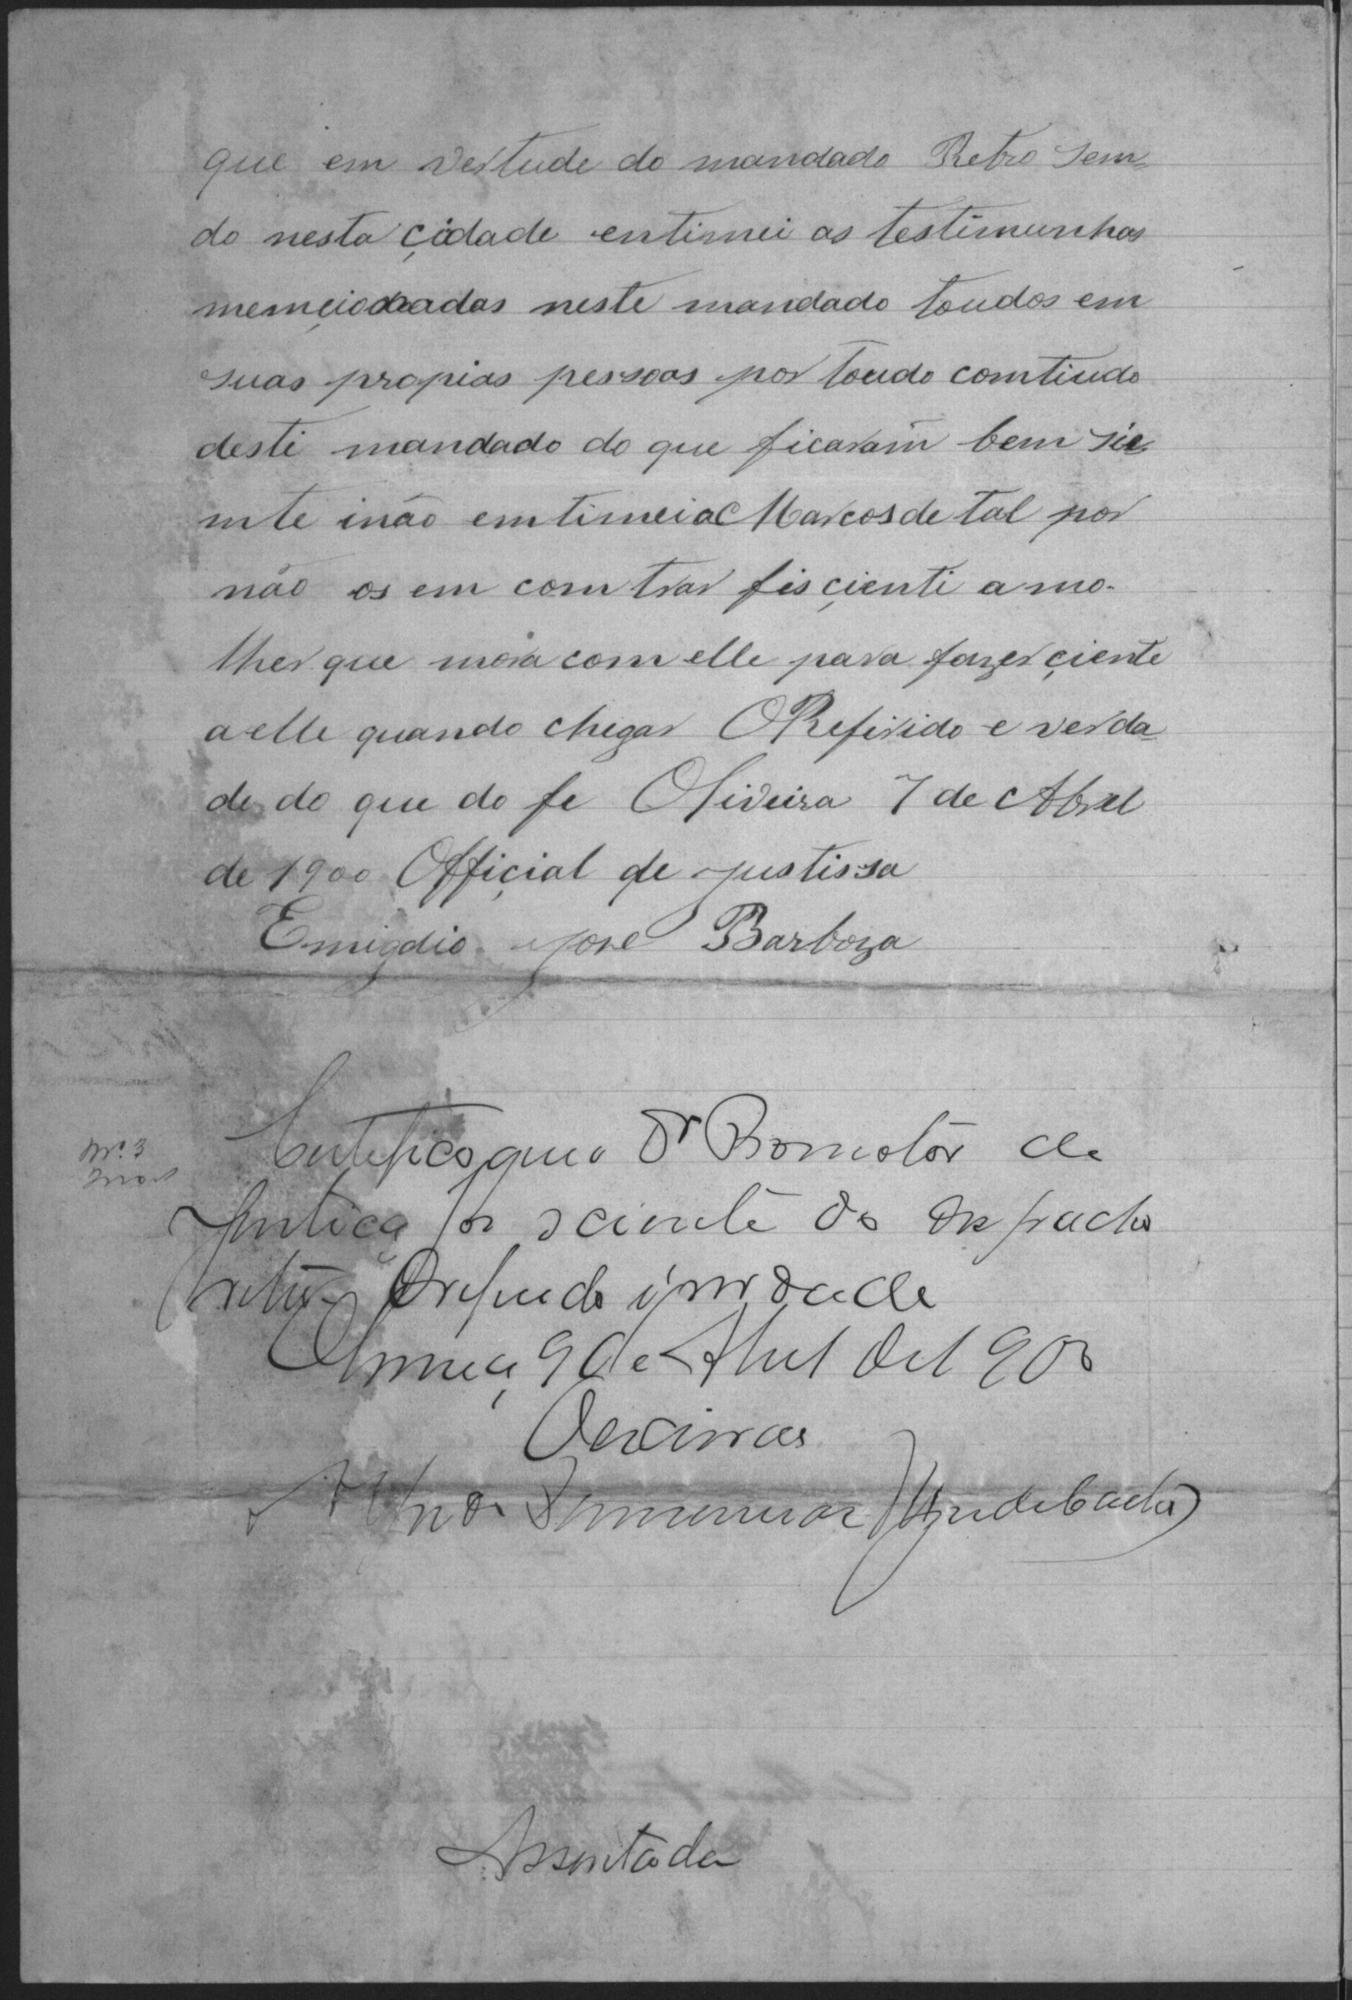 que em vertude do mandado Retro sem
do nesta çidade entimei as testimunhas
memçionadas neste mandado toudos em
suas propias pessoas por toudo comtiudo
desti mandado do que ficaram bem sie
mte i não emtimei a Marcos de tal por
não os em comtrar fis çienti a mo-
lher que mora com elle para fazer çiente
a elle quando chegar O Refirido e verda
de do que do fe Oliveira 7 de Abril
de 1900 Offiçial de justissa
Emigdio José Barboza
Nº 3
Certifico que o Dr Promotor de
Justiça foi sciente do despacho
retro O referido é verdade
9 de Abril de 1900
Assentada